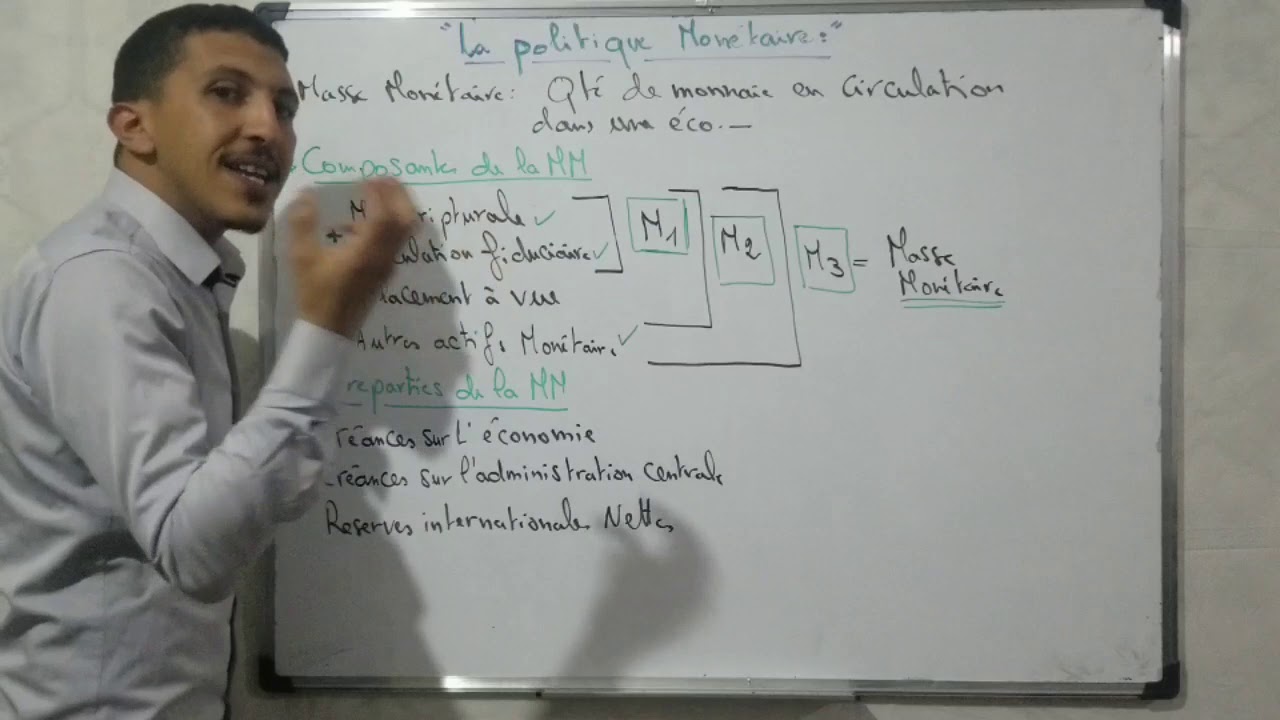 "La politique Monétaire:"
Masse Monétaire: Qté de monnaie en circulation
dans une éco.—
Composantes de la MM
M ripturale ✓
+ ulation fiduciaire ✓
lacement à vue
Autres actifs Monétaire ✓
M1
M2
M3 = Masse
Monétaire
reparties de la MM
réances sur l'économie
réances sur l'administration centrale
Reserves internationales Nettes